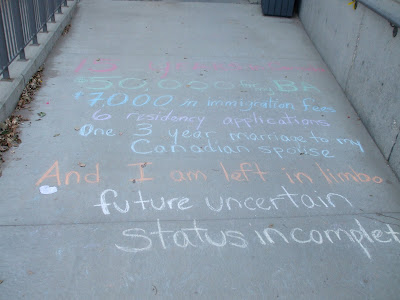 12
$50,000 BA
$7,000 in immigration fees
6 residency applications
One 3 year marriage to my
Canadian spouse
And I am left in limbo
future uncertain
status incomplet